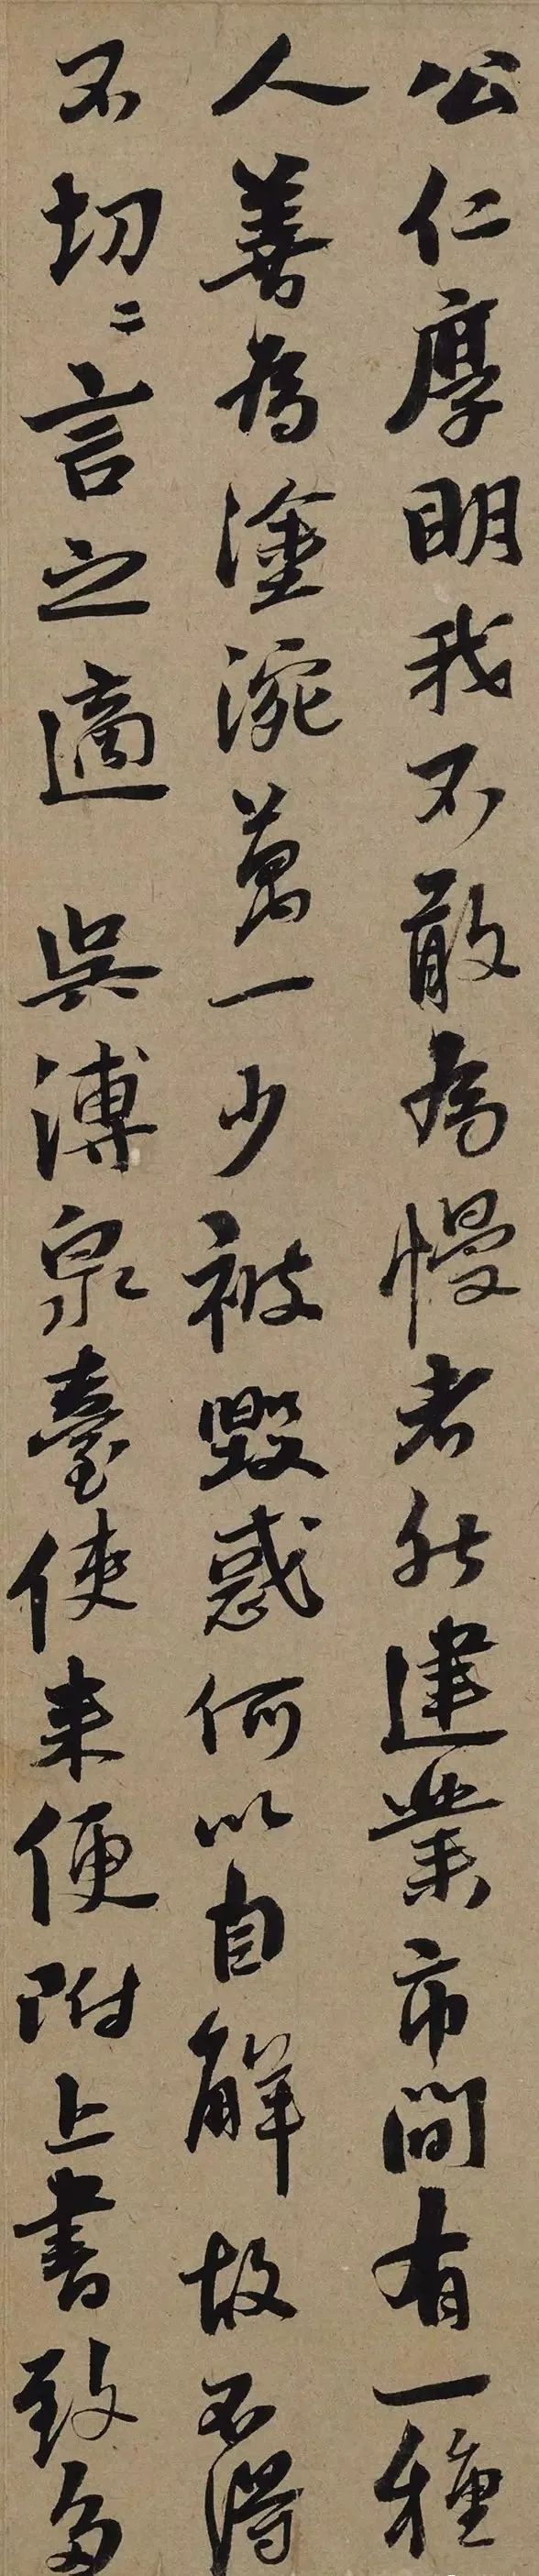 公仁厚明我不敢為慢者然建業市間有一種
人善為塗涴萬一少被毀惑何以自解故不得
不切〻言之適 吳溥泉臺使来便附上書致